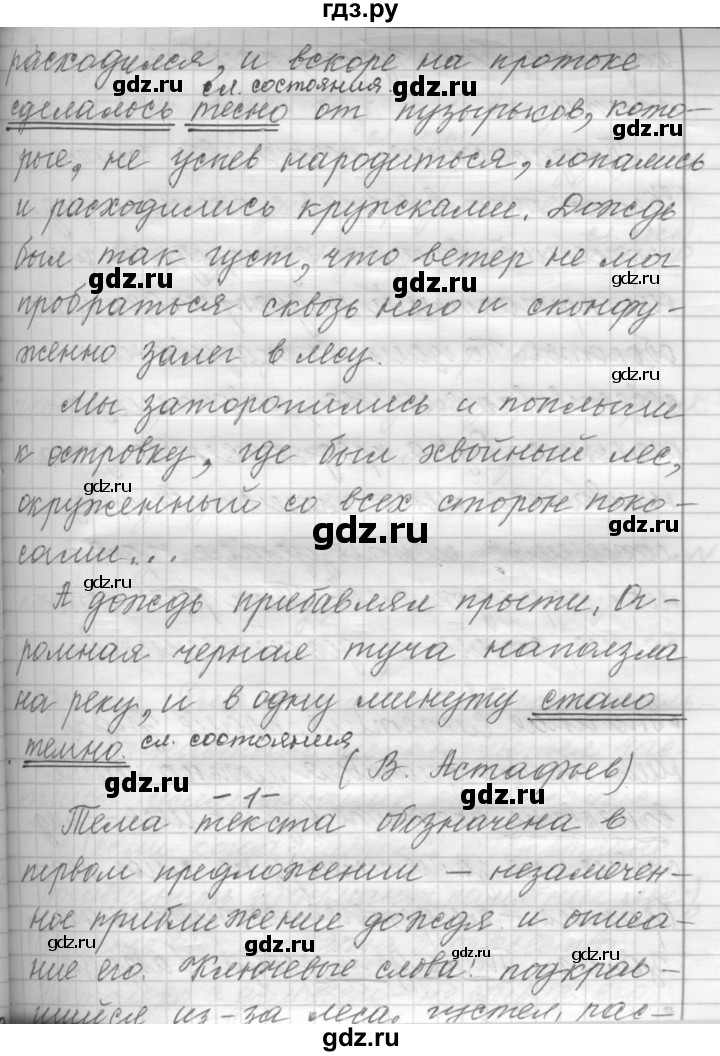 гдз.ру
расходился, и вскоре на протоке
gdz.ru сл. состояния gdz.ru
сделалось тесно от пузырьков, кото-
gdz.ru
рые, не успев народиться, лопались
и расходились кружками. Дождь
был так густ, что ветер не мог
gdz.ru gdz.ru gdz.ru
пробраться сквозь него и сконфу-
женно залег в лесу.
gdz.ru
Мы заторопились и поплыли
к островку, где был хвойный лес,
gdz.ru
окруженный со всех сторон поко-
gdz.ru gdz.ru
сами...
gdz.ru
А дождь прибавлял прыти. Ог-
gdz.ru
ромная черная туча наползла
на реку, и в одну минуту стало
темно. сл. состояния
(В. Астафьев)
gdz.ru gdz.ru
-1-
Тема текста обозначена в
первом предложении – незамечен-
ное приближение дождя и описа-
gdz.ru gdz.ru gdz.ru gdz.ru
ние его. Ключевые слова: подкрав-
шийся из-за леса, густел, рас-
gdz.ru